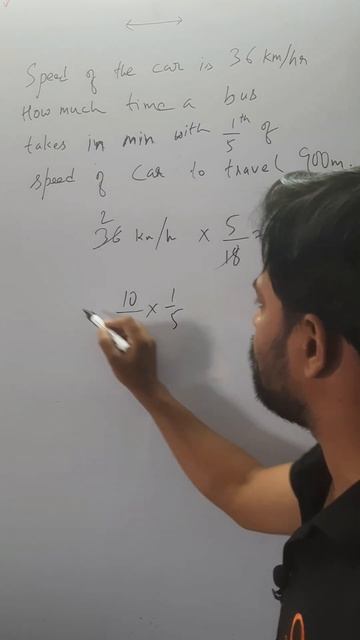 Speed of the car is 36 km/hr
How much time a bus
takes in min with 1/5 th of
speed of car to travel 900m.
2
36 km/h × 5/18 =
10 × 1/5